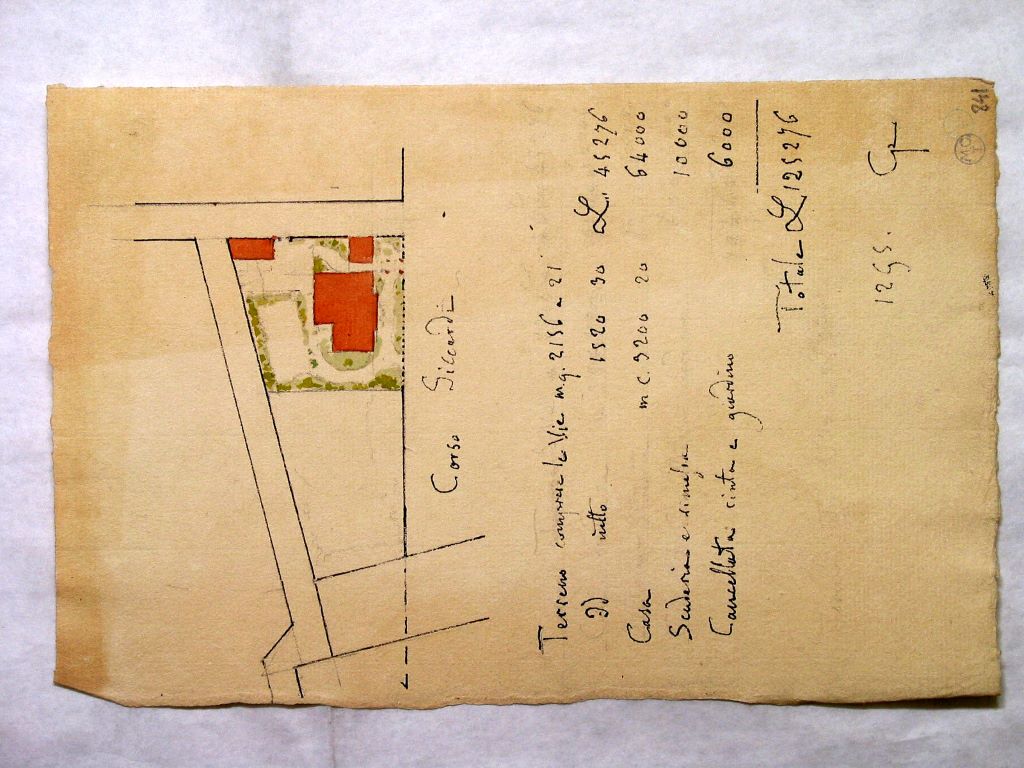 Corso Siccardi
Terreno comprese le Vie m.q. 2156 a 21 L. 45276
Id netto 1520 30
Casa m c. 3200 20 64000
Scuderia e rimessa 10000
Cancellata cinta e giardino 6000
Totale L 125276
MO
841